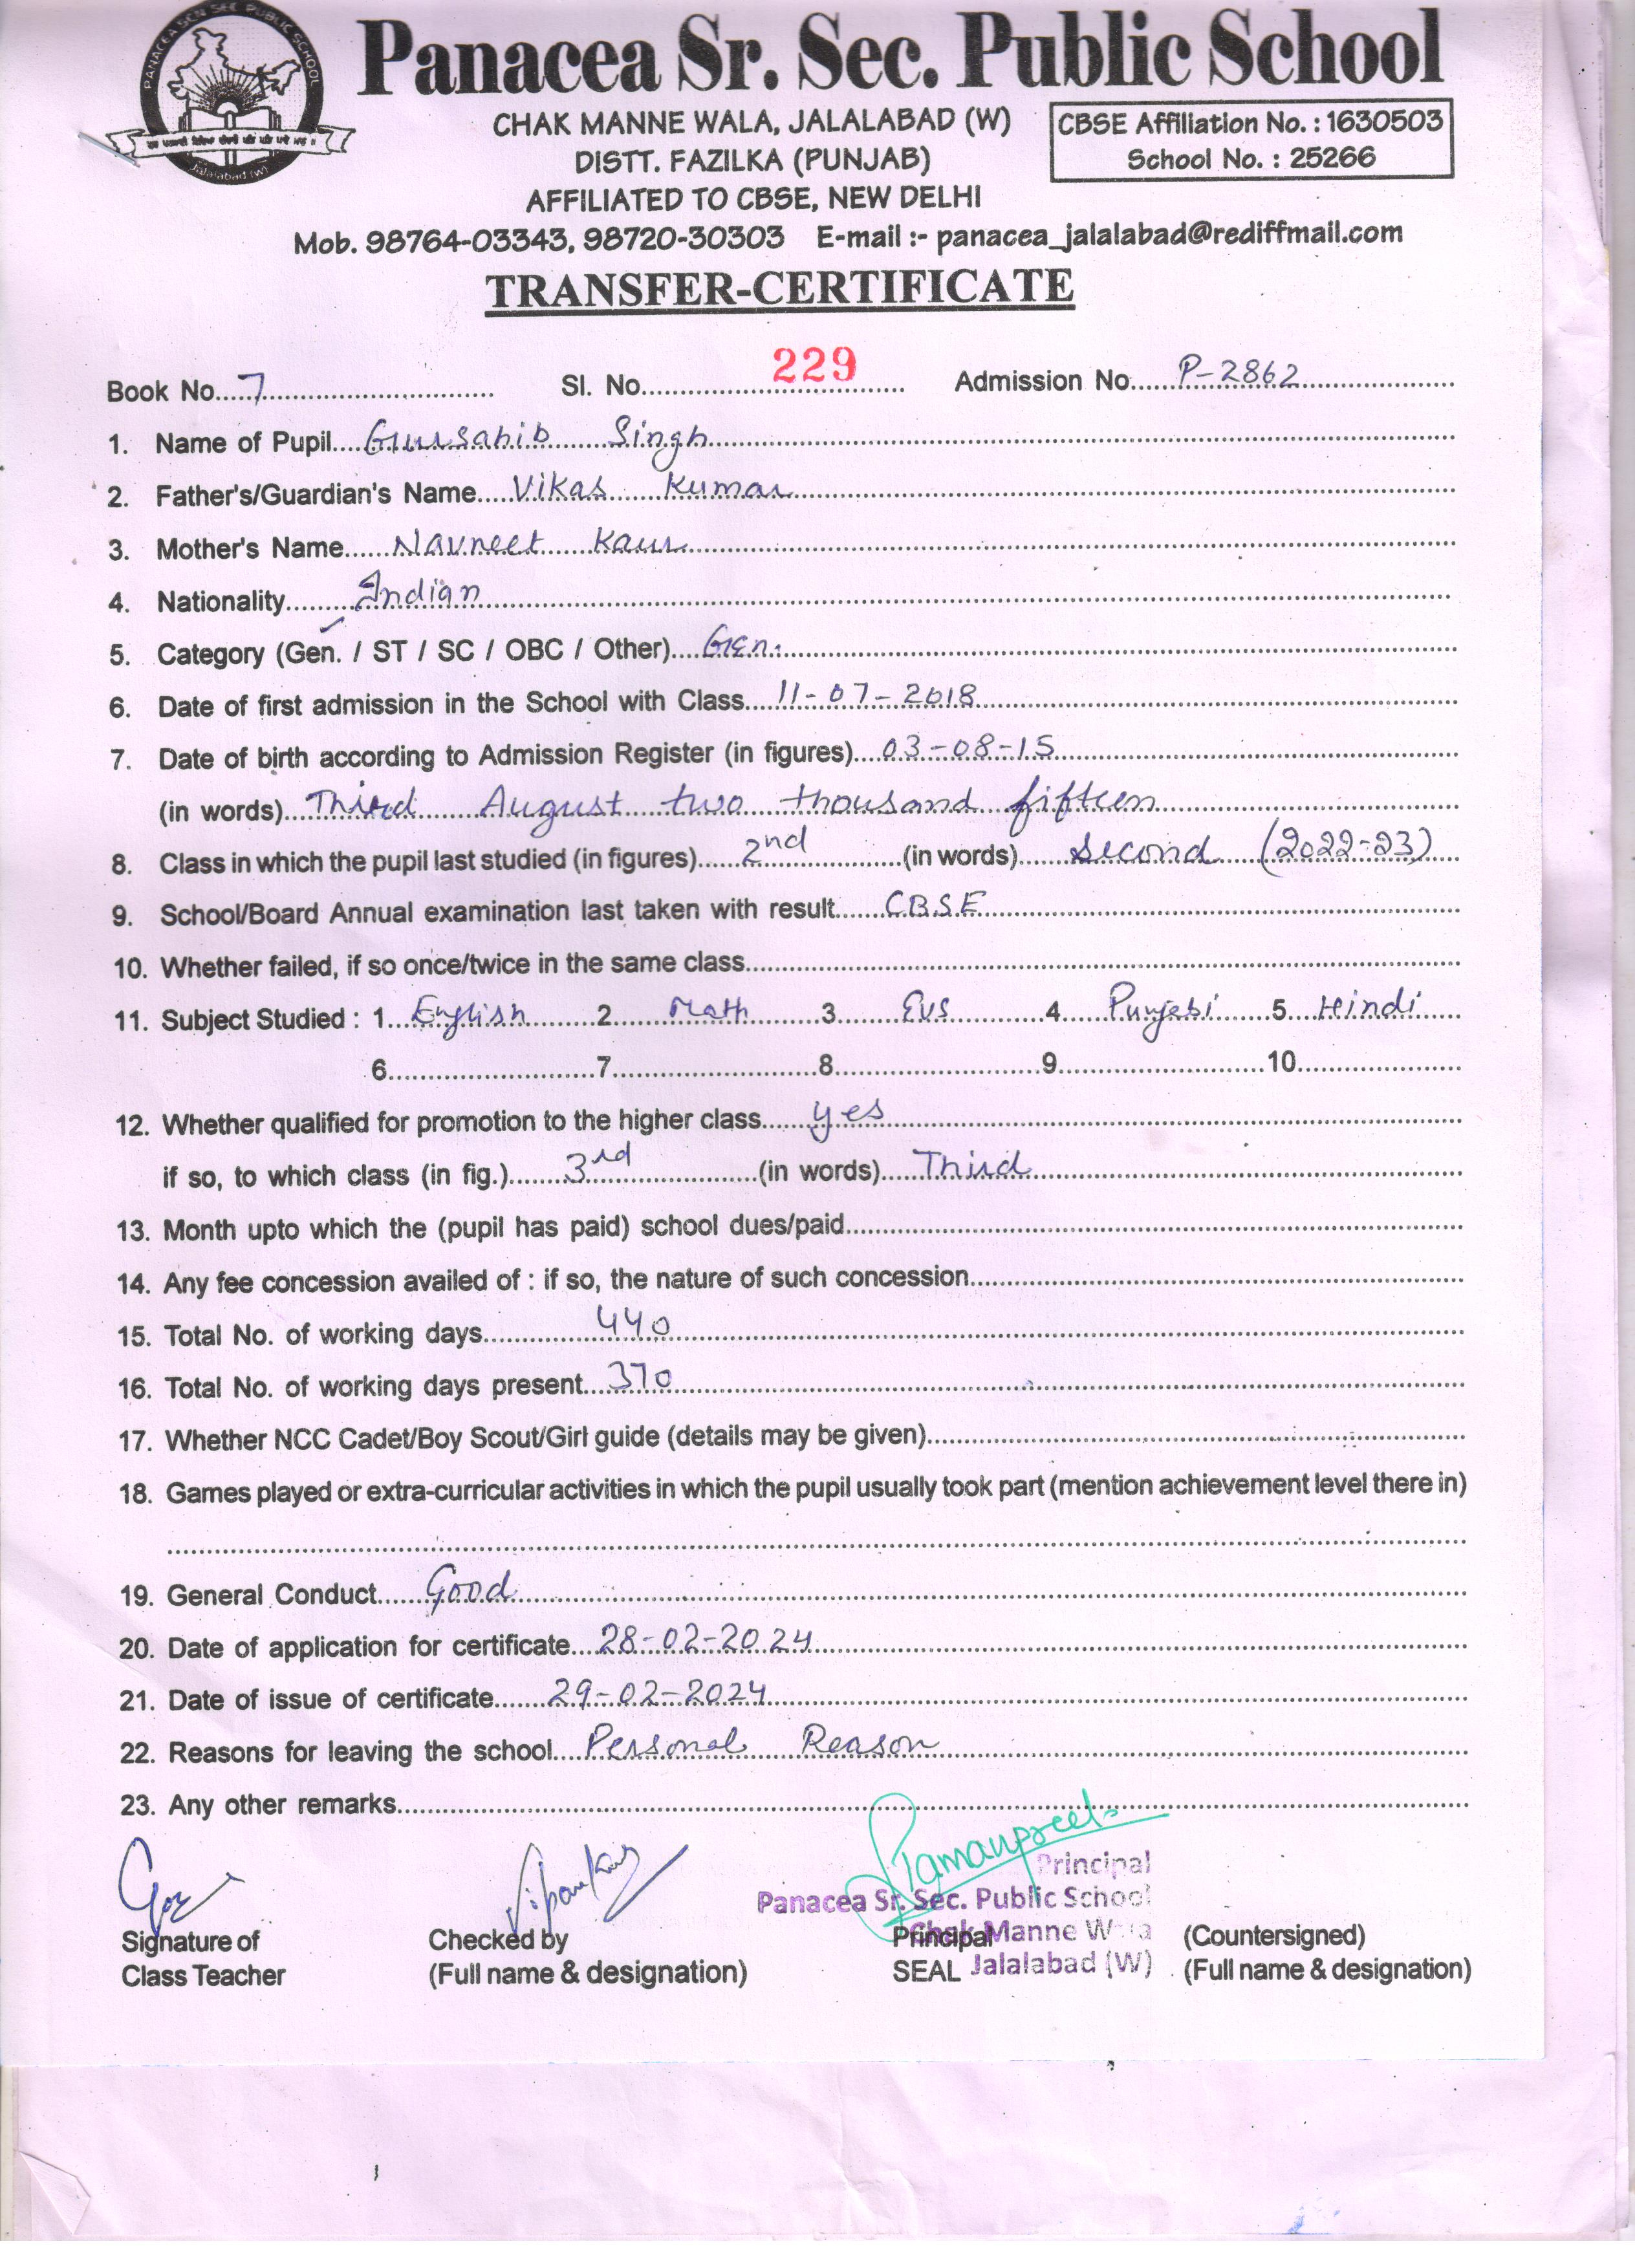 PANACEA SEN SEC PUBLIC SCHOOL
Jalalabad (W)
Panacea Sr. Sec. Public School
CHAK MANNE WALA, JALALABAD (W)
DISTT. FAZILKA (PUNJAB)
AFFILIATED TO CBSE, NEW DELHI
CBSE Affiliation No. : 1630503
School No. : 25266
Mob. 98764-03343, 98720-30303 E-mail :- panacea_jalalabad@rediffmail.com
TRANSFER-CERTIFICATE
Book No. 7 Sl. No. 229 Admission No. P-2862
1. Name of Pupil Gursahib Singh
2. Father's/Guardian's Name Vikas Kumar
3. Mother's Name Navneet Kaur
4. Nationality Indian
5. Category (Gen. / ST / SC / OBC / Other) Gen.
6. Date of first admission in the School with Class 11-07-2018
7. Date of birth according to Admission Register (in figures) 03-08-15
(in words) Third August two thousand fifteen
8. Class in which the pupil last studied (in figures) 2nd (in words) Second (2022-23)
9. School/Board Annual examination last taken with result CBSE
10. Whether failed, if so once/twice in the same class
11. Subject Studied : 1. English 2. Math 3. EVS 4. Punjabi 5. Hindi
6. 7. 8. 9. 10.
12. Whether qualified for promotion to the higher class yes
if so, to which class (in fig.) 3rd (in words) Third
13. Month upto which the (pupil has paid) school dues/paid
14. Any fee concession availed of : if so, the nature of such concession
15. Total No. of working days 440
16. Total No. of working days present 370
17. Whether NCC Cadet/Boy Scout/Girl guide (details may be given)
18. Games played or extra-curricular activities in which the pupil usually took part (mention achievement level there in)
19. General Conduct Good
20. Date of application for certificate 28-02-2024
21. Date of issue of certificate 29-02-2024
22. Reasons for leaving the school Personal Reason
23. Any other remarks
Ramanpreet
Principal
Panacea Sr. Sec. Public School
Chak Manne Wala
Jalalabad (W)
Signature of
Class Teacher
Checked by
(Full name & designation)
Principal
SEAL
(Countersigned)
(Full name & designation)